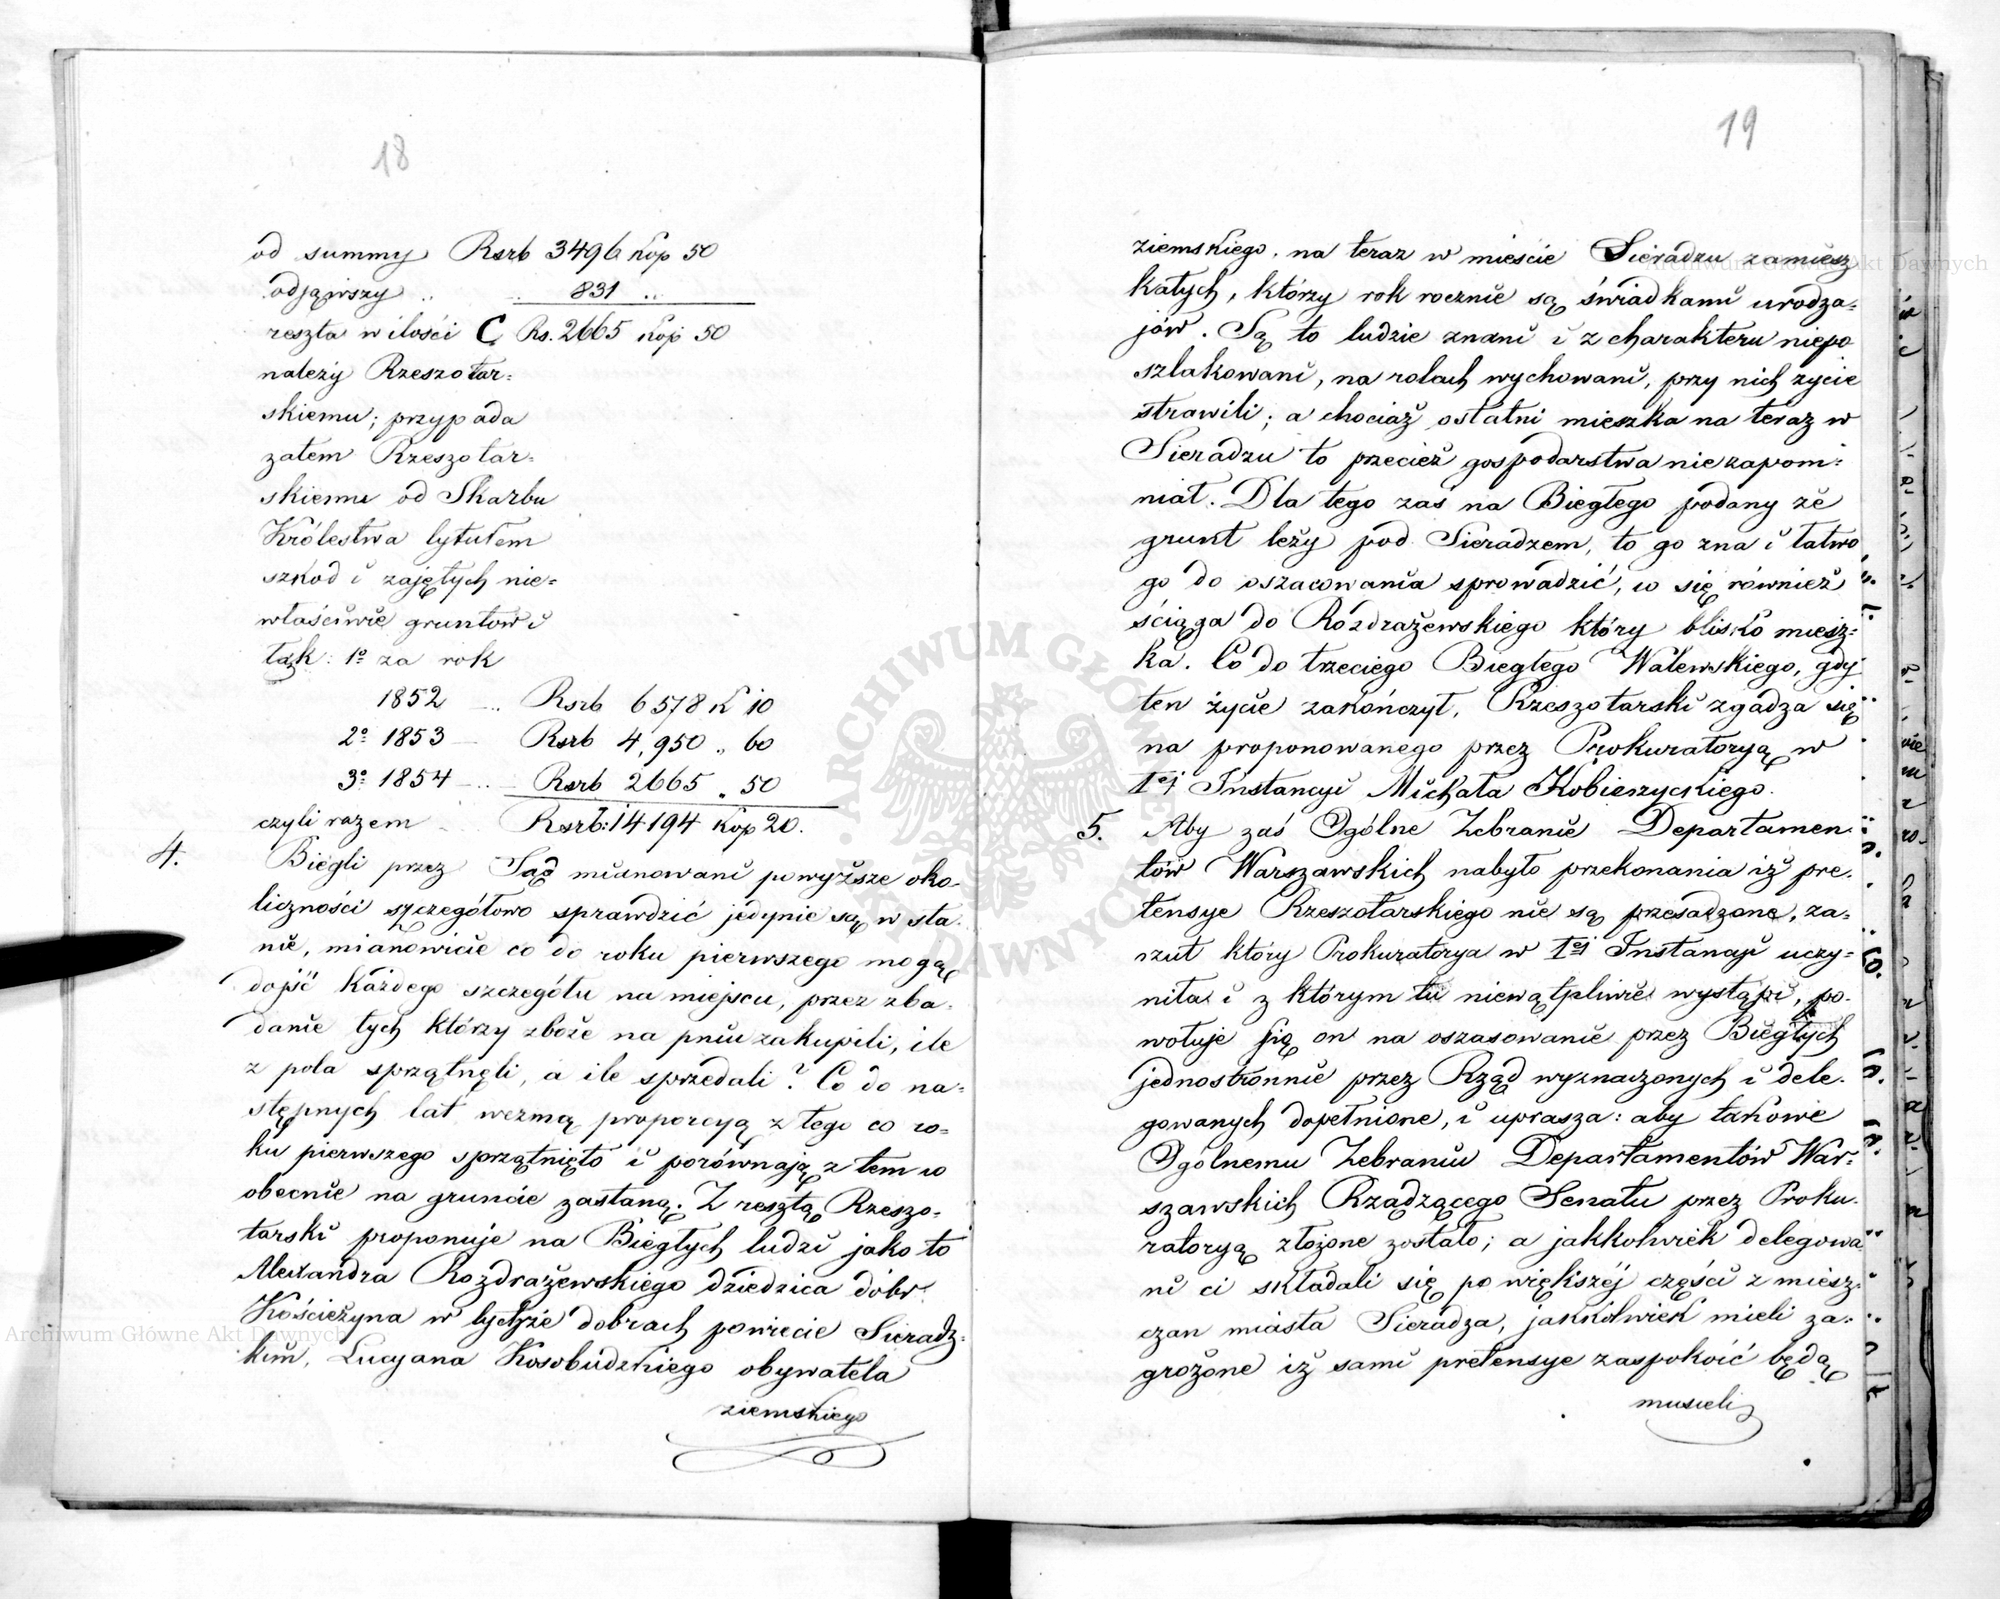 18
od summy Rsrb 3496 Kop 50
odjąwszy .. .. 831 ..
reszta w ilości C Rs. 2665 Kop 50
należy Rzeszotar=
skiemu; przypada
zatem Rzeszotar=
skiemu od Skarbu
Królestwa tytułem
szkod i zajętych nie=
właściwie gruntów i
tak: 1º za rok
1852 _ .. Rsrb 6578 K 10
2º 1853 — Rsrb 4,950 „ 60
3º 1854 — .. Rsrb 2665 „ 50
czyli razem _ Rsrb: 14194 Kop 20.
4. Biegli przez Sąd mianowani powyższe oko-
liczności szczegółowo sprawdzić jedynie są w sta-
nie, mianowicie co do roku pierwszego mogą
dojść każdego szczegółu na miejscu, przez zba-
danie tych którzy zboże na pniu zakupili, ile
z pola sprzątnęli, a ile sprzedali? Co do na-
stępnych lat wezmą proporcyą z tego co ro=
ku pierwszego sprzątnięto i porównają z tem co
obecnie na gruncie zastaną. Z resztą Rzeszo-
tarski proponuje na Biegłych ludzi jako to
Alexandra Rozdrażewskiego dziedzica dóbr
Kościeżyna w tychże dobrach powiecie Sieradz-
kim, Lucyana Kosobudzkiego obywatela
ziemskiego
19
ziemskiego, na teraz w mieście Sieradzu zamiesz
kałych, którzy rok rocznie są świadkami urodza-
jów. Są to ludzie znani i z charakteru niepo
szlakowani, na rolach wychowani, przy nich życie
strawili; a chociaż ostatni mieszka na teraz w
Sieradzu to przecież gospodarstwa nie zapom=
niał. Dla tego zaś na Biegłego podany że
grunt leży pod Sieradzem, to go zna i łatwo
go do oszacowania sprowadzić, co się również
ściąga do Rozdrażewskiego który blisko miesz=
ka. Co do trzeciego Biegłego Walewskiego, gdy
ten życie zakończył, Rzeszotarski zgadza się
na proponowanego przez Prokuratoryą w
1ej Instancyi Michała Kobierzyckiego.
5. Aby zaś Ogólne Zebranie Departamen
tów Warszawskich nabyło przekonania iż pre-
tensye Rzeszotarskiego nie są przesadzone, za=
rzut który Prokuratorya w 1ej Instancyi uczy=
niła i z którym tu niewątpliwie wystąpi, po-
wołuje się on na oszasowanie przez Biegłych
jednostronnie przez Rząd wyznaczonych i dele-
gowanych dopełnione, i uprasza: aby takowe
Ogólnemu Zebraniu Departamentów War-
szawskich Rządzącego Senatu przez Proku-
ratoryą złożone zostało; a jakkolwiek delegowa
ni ci składali się po większéj części z miesz=
czan miasta Sieradza, jakkolwiek mieli za-
grożone iż sami pretensye zaspokoić będą
musieli
ARCHIWUM GŁÓWNE AKT DAWNYCH
Archiwum Główne Akt Dawnych
Archiwum Główne Akt Dawnych